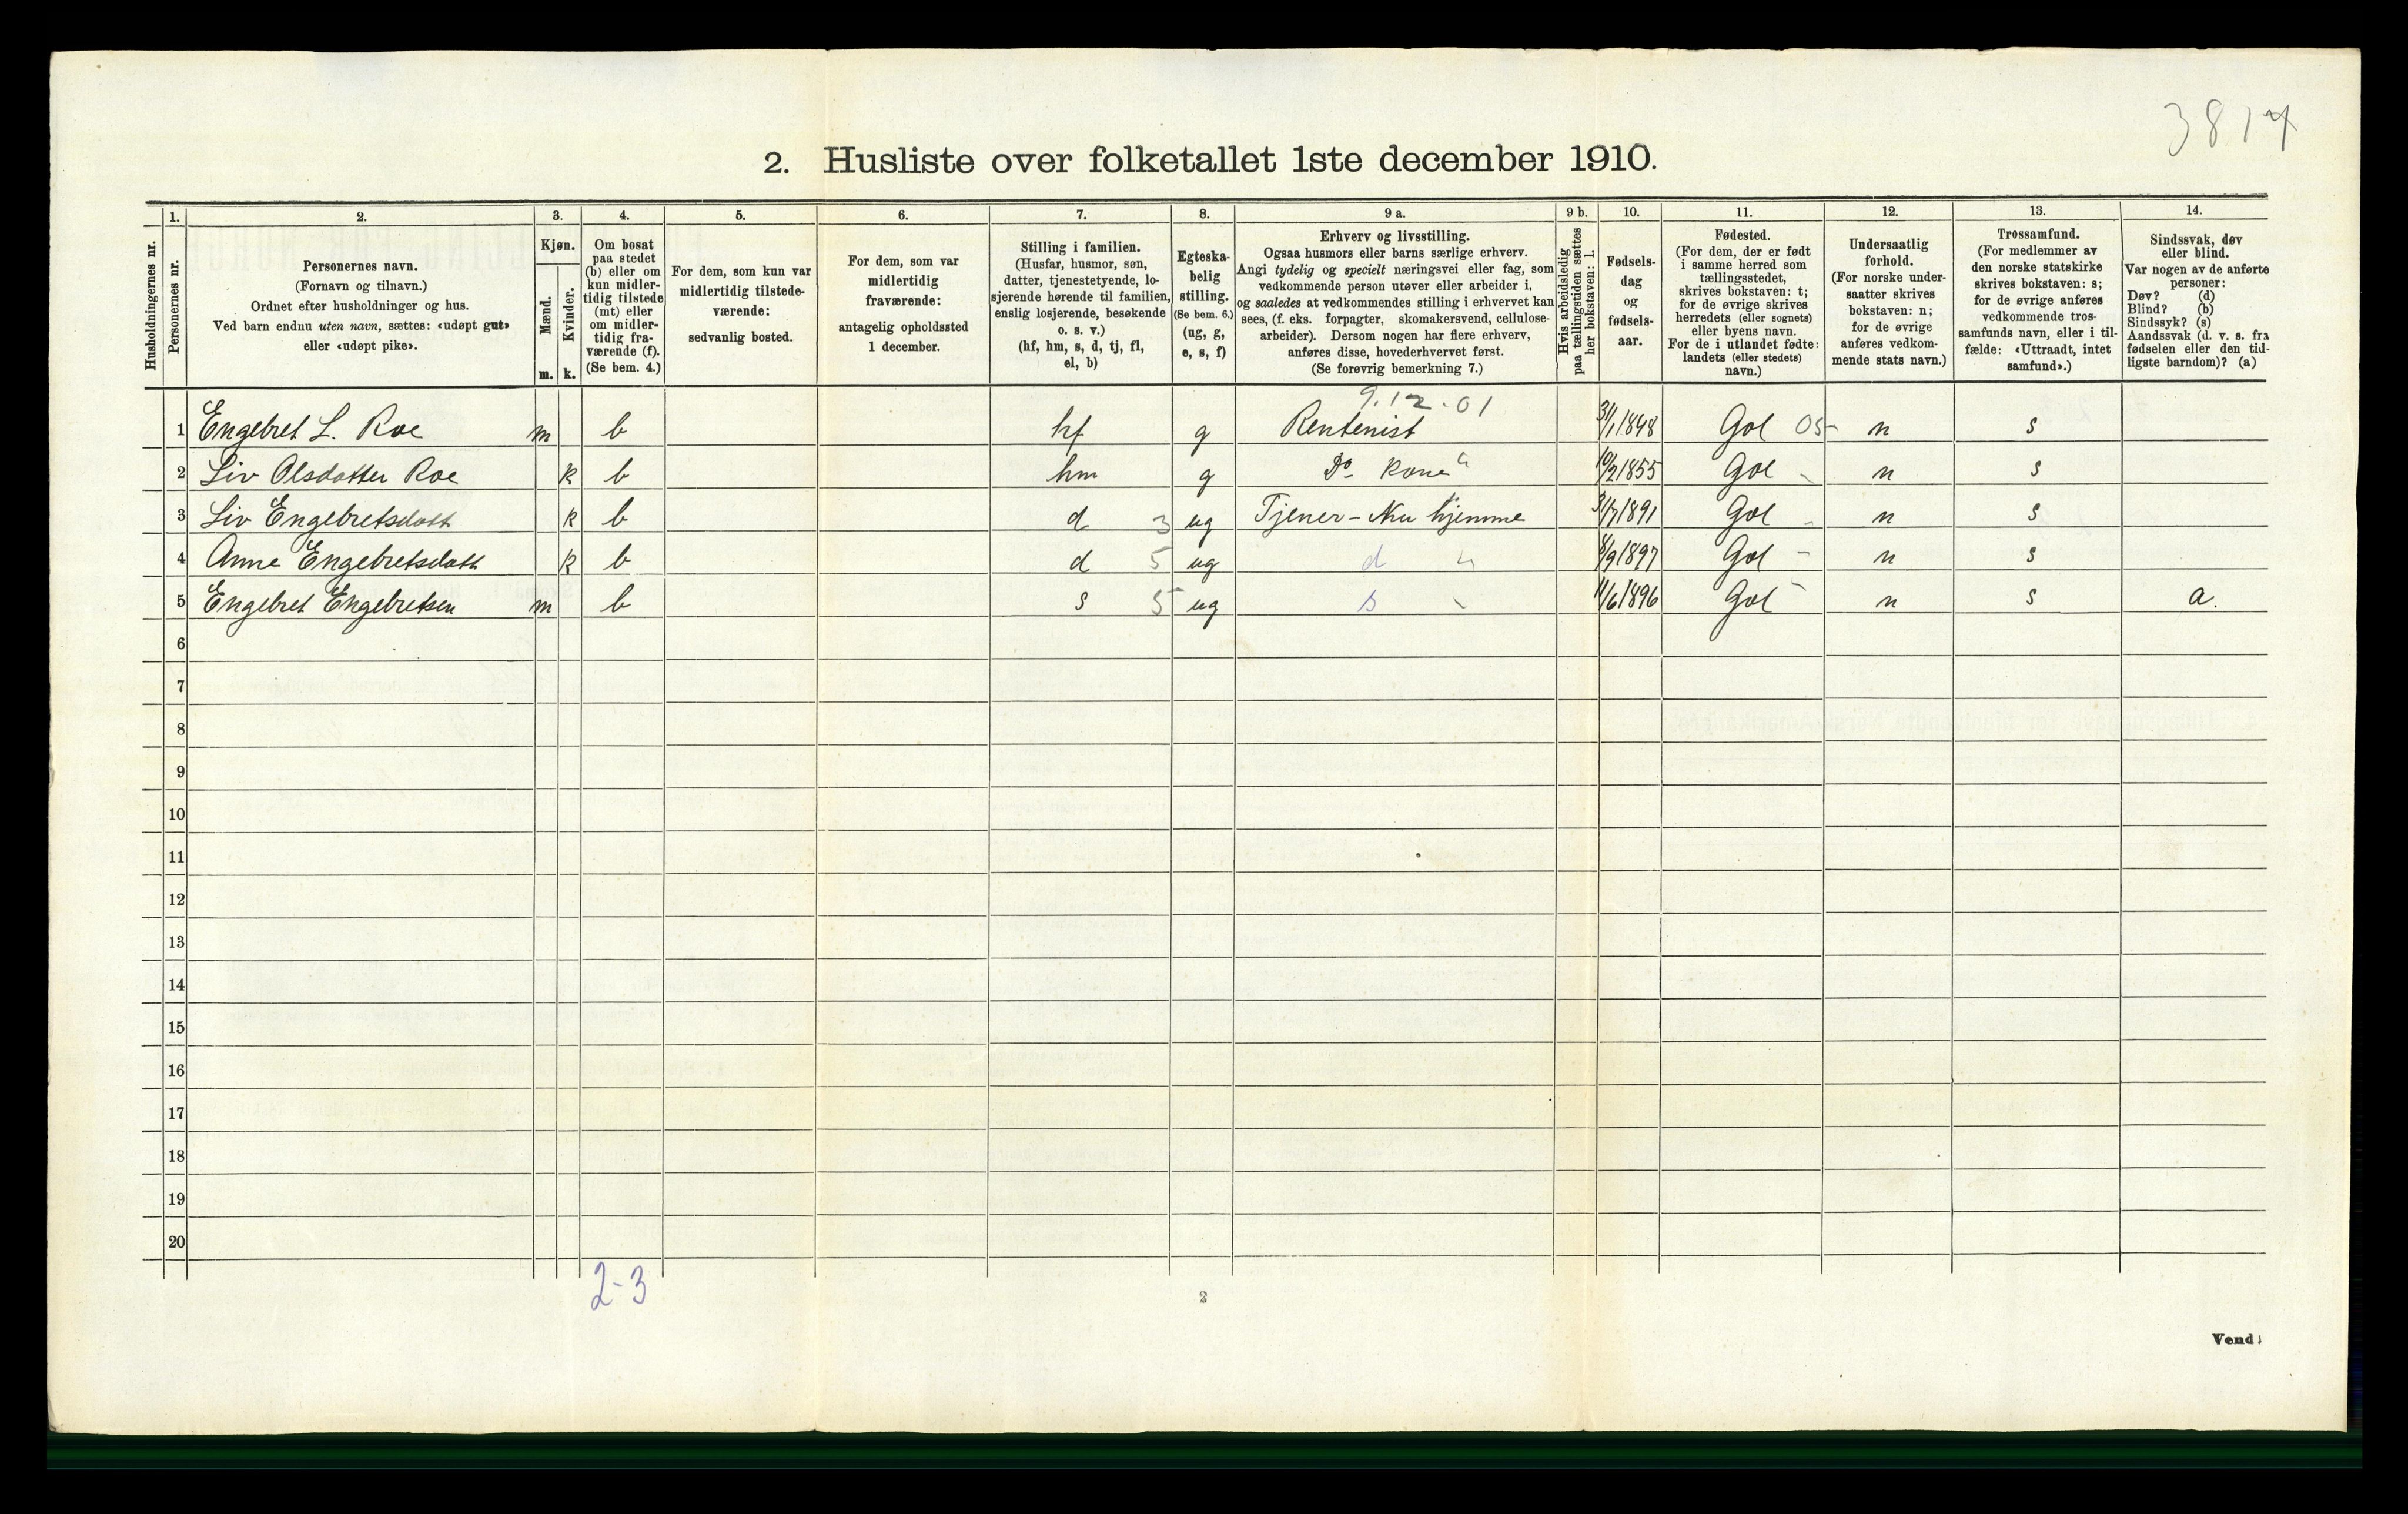 3817
2. Husliste over folketallet 1ste december 1910.
Husholdningernes nr.
1.
Personernes nr.
2.
Personernes navn.
(Fornavn og tilnavn.)
Ordnet efter husholdninger og hus.
Ved barn endnu uten navn, sættes: «udøpt gut»
eller «udøpt pike».
3.
Kjøn.
Mænd.
Kvinder.
m. k.
4.
Om bosat
paa stedet
(b) eller om
kun midler-
tidig tilstede
(mt) eller
om midler-
tidig fra-
værende (f).
(Se bem. 4.)
5.
For dem, som kun var
midlertidig tilstede-
værende:
sedvanlig bosted.
6.
For dem, som var
midlertidig
fraværende:
antagelig opholdssted
1 december.
7.
Stilling i familien.
(Husfar, husmor, søn,
datter, tjenestetyende, lo-
sjerende hørende til familien,
enslig losjerende, besøkende
o. s. v.)
(hf, hm, s, d, tj, fl,
el, b)
8.
Egteska-
belig
stilling.
(Se bem. 6.)
(ug, g,
e, s, f)
9 a.
Erhverv og livsstilling.
Ogsaa husmors eller barns særlige erhverv.
Angi tydelig og specielt næringsvei eller fag, som
vedkommende person utøver eller arbeider i,
og saaledes at vedkommendes stilling i erhvervet kan
sees, (f. eks. forpagter, skomakersvend, cellulose-
arbeider). Dersom nogen har flere erhverv,
anføres disse, hovederhvervet først.
(Se forøvrig bemerkning 7.)
9 b.
Hvis arbeidsledig
paa tællingstiden sættes
her bokstaven: l.
10.
Fødsels-
dag
og
fødsels-
aar.
11.
Fødested.
(For dem, der er født
i samme herred som
tællingsstedet,
skrives bokstaven: t;
for de øvrige skrives
herredets (eller sognets)
eller byens navn.
For de i utlandet fødte:
landets (eller stedets)
navn.)
12.
Undersaatlig
forhold.
(For norske under-
saatter skrives
bokstaven: n;
for de øvrige
anføres vedkom-
mende stats navn.)
13.
Trossamfund.
(For medlemmer av
den norske statskirke
skrives bokstaven: s;
for de øvrige anføres
vedkommende tros-
samfunds navn, eller i til-
fælde: «Uttraadt, intet
samfund».)
14.
Sindssvak, døv
eller blind.
Var nogen av de anførte
personer:
Døv? (d)
Blind? (b)
Sindssyk? (s)
Aandssvak (d. v. s. fra
fødselen eller den tid-
ligste barndom)? (a)
9.12.01
1 Engebret L. Roe m b hf g Rentenist 31/1 1848 Gol 05- n s
2 Liv Olsdatter Roe k b hm g Do kone " 10/2 1855 Gol - n s
3 Liv Engebretsdatt k b d 3 ug Tjener - Nu hjemme 31/7 1891 Gol - n s
4 Anne Engebretsdatt k b d 5 ug d " 8/9 1897 Gol - n s
5 Engebret Engebretsen m b s 5 ug s 11/6 1896 Gol - n s a.
6
7
8
9
10
11
12
13
14
15
16
17
18
19
20
2-3
2
Vend!